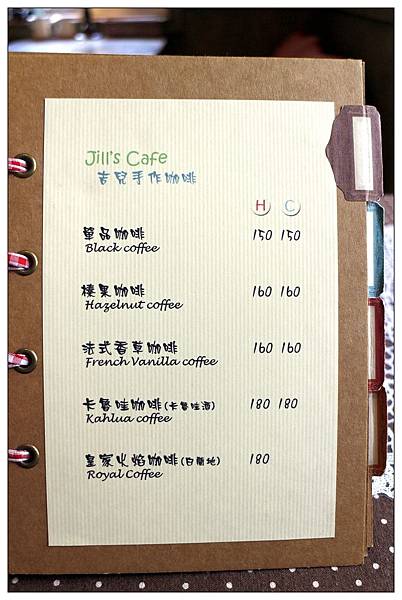 Jill's Cafe
吉兒手作咖啡
H C
單品咖啡 150 150
Black coffee
榛果咖啡 160 160
Hazelnut coffee
法式香草咖啡 160 160
French Vanilla coffee
卡魯哇咖啡(卡魯哇酒) 180 180
Kahlua coffee
皇家火焰咖啡(白蘭地) 180
Royal Coffee